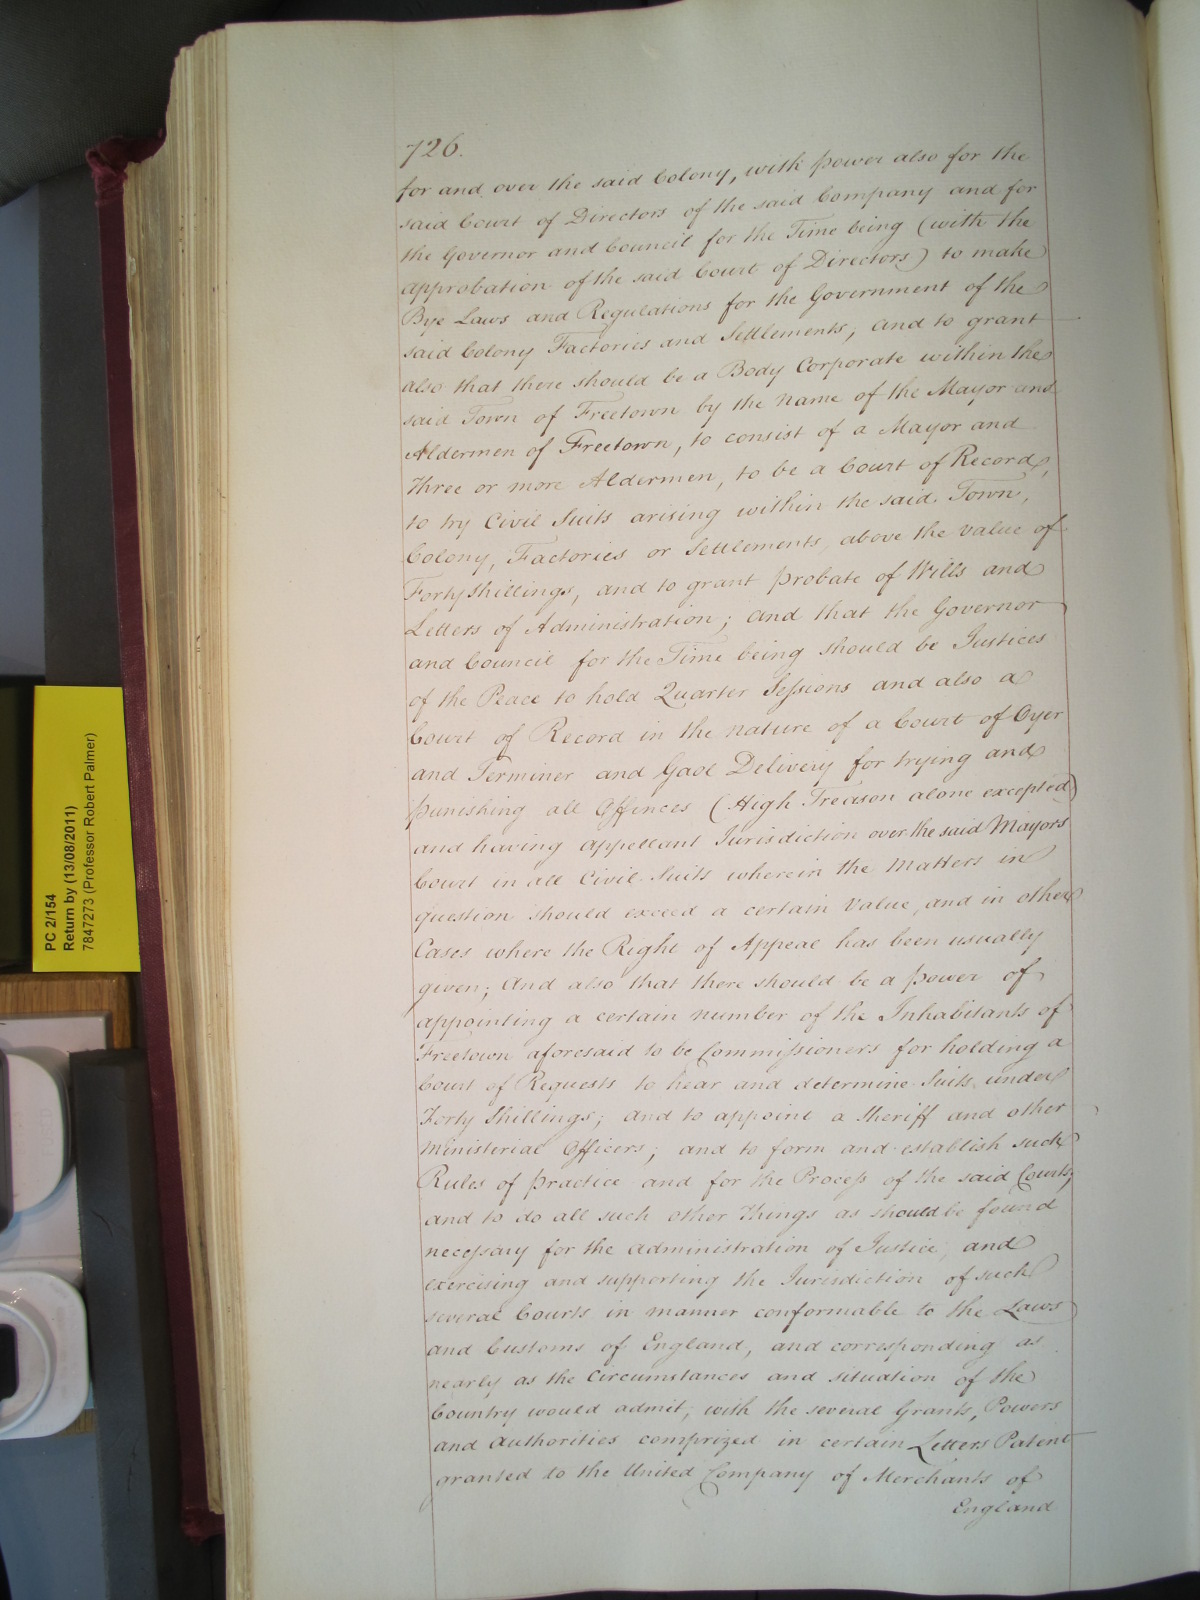 726.
for and over the said Colony, with power also for the
said Court of Directors of the said Company and for
the Governor and Council for the Time being (with the
approbation of the said Court of Directors) to make
Bye Laws and Regulations for the Government of the
said Colony Factories and Settlements, and to grant
also that there should be a Body Corporate within the
said Town of Freetown by the Name of the Mayor and
Aldermen of Freetown, to consist of a Mayor and
Three or more Aldermen, to be a Court of Record,
to try Civil Suits arising within the said Town,
Colony, Factories or Settlements, above the value of
Forty Shillings, and to grant probate of Wills and
Letters of Administration; and that the Governor
and Council for the Time being should be Justices
of the Peace to hold Quarter Sessions and also a
Court of Record in the nature of a Court of Oyer
and Terminer and Gaol Delivery for trying and
punishing all Offences (High Treason alone excepted)
and having appellant Jurisdiction over the said Mayors
Court in all Civil Suits wherein the Matters in
question should exceed a certain Value, and in other
Cases where the Right of Appeal has been usually
given; And also that there should be a power of
appointing a certain number of the Inhabitants of
Freetown aforesaid to be Commissioners for holding a
Court of Requests to hear and determine Suits under
Forty Shillings; and to appoint a Sheriff and other
Ministerial Officers; and to form and establish such
Rules of practice and for the Process of the said Courts,
and to do all such other Things as should be found
necessary for the administration of Justice, and
exercising and supporting the Jurisdiction of such
several Courts in manner conformable to the Laws
and Customs of England, and corresponding as
nearly as the Circumstances and situation of the
Country would admit, with the several Grants, Powers
and Authorities comprized in certain Letters Patent
granted to the United Company of Merchants of
England
PC 2/154
Return by (13/08/2011)
7847273 (Professor Robert Palmer)